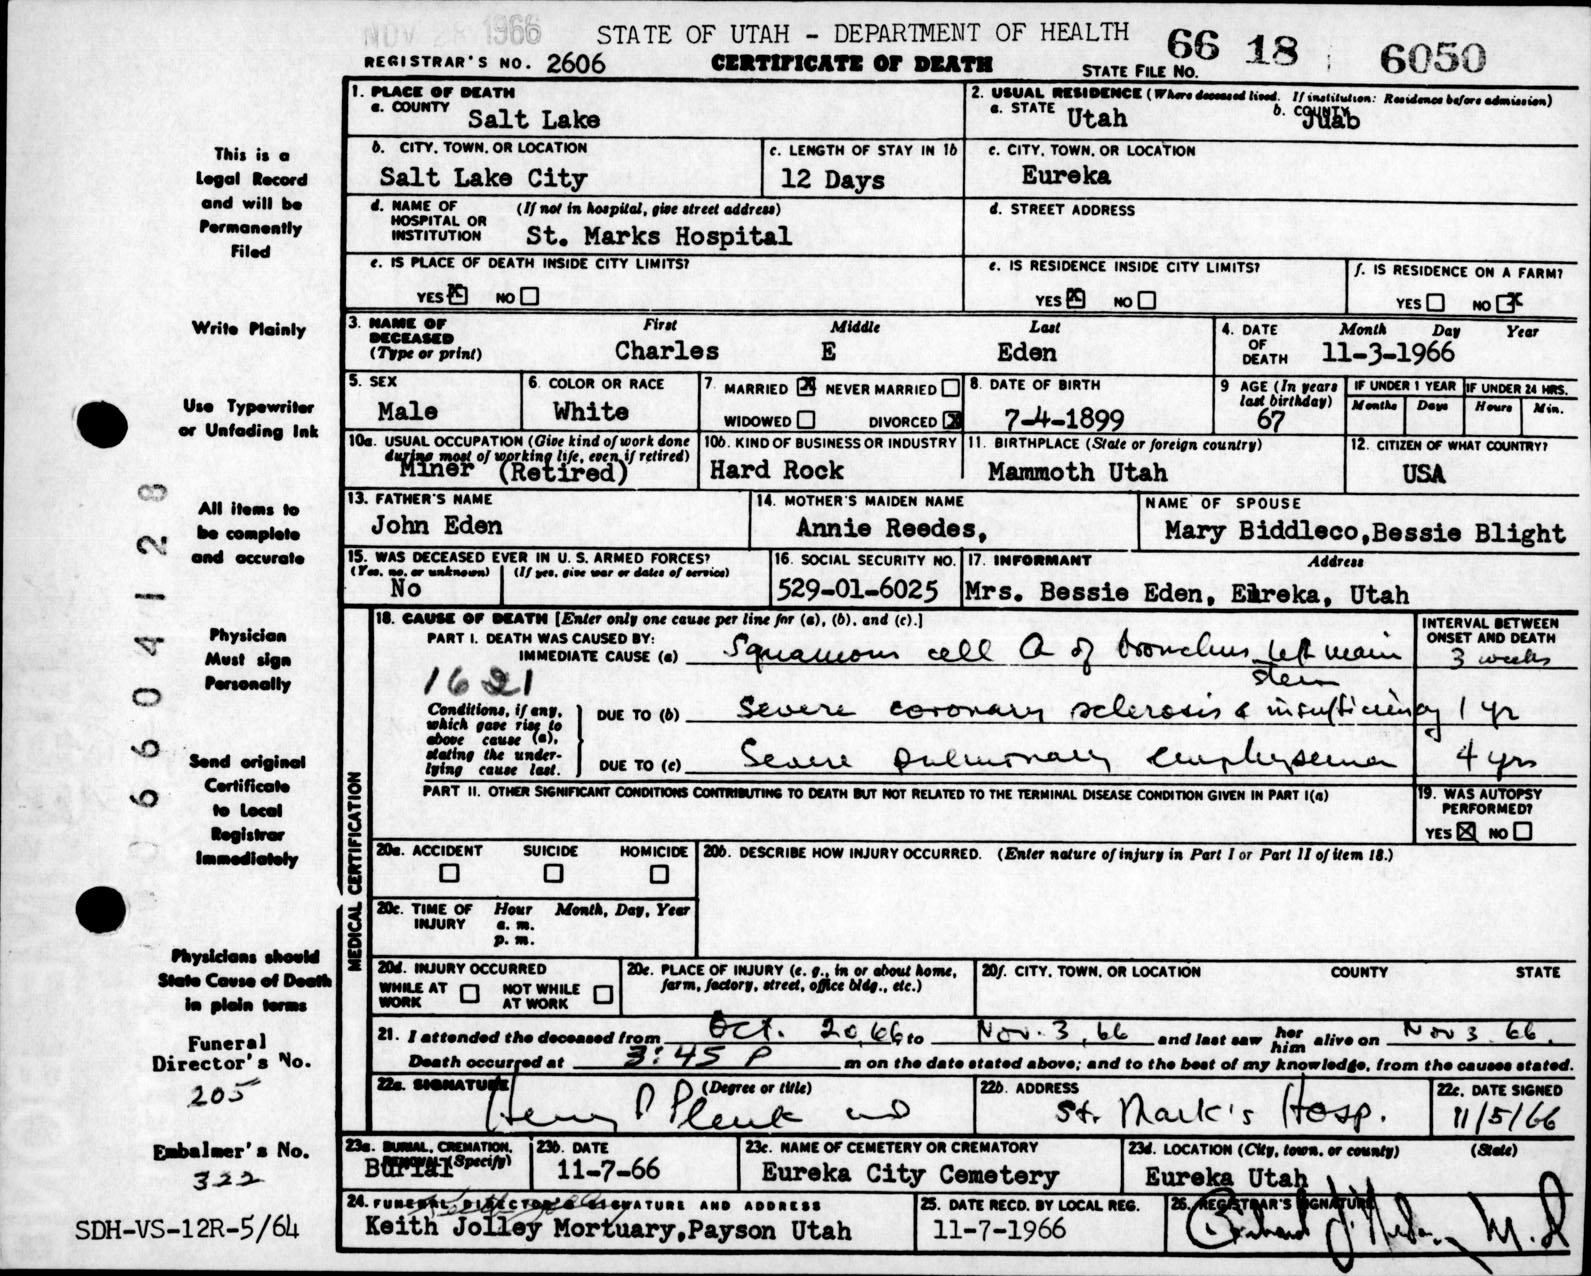 NOV 28 1966
STATE OF UTAH - DEPARTMENT OF HEALTH
66 18 6050
REGISTRAR'S NO. 2606
CERTIFICATE OF DEATH
STATE FILE NO.
1. PLACE OF DEATH
a. COUNTY
Salt Lake
2. USUAL RESIDENCE (Where deceased lived. If institution: Residence before admission)
a. STATE
Utah
b. COUNTY
Juab
b. CITY, TOWN, OR LOCATION
Salt Lake City
c. LENGTH OF STAY IN 1b
12 Days
c. CITY, TOWN, OR LOCATION
Eureka
d. NAME OF HOSPITAL OR INSTITUTION
(If not in hospital, give street address)
St. Marks Hospital
d. STREET ADDRESS
e. IS PLACE OF DEATH INSIDE CITY LIMITS?
YES X NO
e. IS RESIDENCE INSIDE CITY LIMITS?
YES X NO
f. IS RESIDENCE ON A FARM?
YES NO X
3. NAME OF DECEASED
(Type or print)
First
Middle
Last
Charles E Eden
4. DATE OF DEATH
Month Day Year
11-3-1966
5. SEX
Male
6. COLOR OR RACE
White
7. MARRIED X NEVER MARRIED
WIDOWED DIVORCED X
8. DATE OF BIRTH
7-4-1899
9 AGE (In years last birthday)
67
IF UNDER 1 YEAR
Months Days
IF UNDER 24 HRS.
Hours Min.
10a. USUAL OCCUPATION (Give kind of work done during most of working life, even if retired)
Miner (Retired)
10b. KIND OF BUSINESS OR INDUSTRY
Hard Rock
11. BIRTHPLACE (State or foreign country)
Mammoth Utah
12. CITIZEN OF WHAT COUNTRY?
USA
13. FATHER'S NAME
John Eden
14. MOTHER'S MAIDEN NAME
Annie Reedes,
NAME OF SPOUSE
Mary Biddleco,Bessie Blight
15. WAS DECEASED EVER IN U. S. ARMED FORCES?
(Yes, no, or unknown) (If yes, give war or dates of service)
No
16. SOCIAL SECURITY NO.
529-01-6025
17. INFORMANT
Address
Mrs. Bessie Eden, Eureka, Utah
MEDICAL CERTIFICATION
18. CAUSE OF DEATH [Enter only one cause per line for (a), (b), and (c).]
INTERVAL BETWEEN ONSET AND DEATH
PART I. DEATH WAS CAUSED BY:
IMMEDIATE CAUSE (a) Squamous cell Ca of bronchus left main stem
3 weeks
1621
Conditions, if any, which gave rise to above cause (a), stating the underlying cause last.
DUE TO (b) Severe coronary sclerosis & insufficiency
1 yr
DUE TO (c) Severe pulmonary emphysema
4 yrs
PART II. OTHER SIGNIFICANT CONDITIONS CONTRIBUTING TO DEATH BUT NOT RELATED TO THE TERMINAL DISEASE CONDITION GIVEN IN PART I(a)
19. WAS AUTOPSY PERFORMED?
YES X NO
20a. ACCIDENT SUICIDE HOMICIDE
20b. DESCRIBE HOW INJURY OCCURRED. (Enter nature of injury in Part I or Part II of item 18.)
20c. TIME OF INJURY
Hour Month, Day, Year
a. m.
p. m.
20d. INJURY OCCURRED
WHILE AT WORK NOT WHILE AT WORK
20e. PLACE OF INJURY (e. g., in or about home, farm, factory, street, office bldg., etc.)
20f. CITY, TOWN, OR LOCATION COUNTY STATE
21. I attended the deceased from Oct. 20, 66, to Nov. 3, 66 and last saw her him alive on Nov 3 66.
Death occurred at 3:45 P m on the date stated above; and to the best of my knowledge, from the causes stated.
22a. SIGNATURE
(Degree or title)
Henry P Plenk MD
22b. ADDRESS
St. Mark's Hosp.
22c. DATE SIGNED
11/5/66
23a. BURIAL, CREMATION, REMOVAL (Specify)
Burial
23b. DATE
11-7-66
23c. NAME OF CEMETERY OR CREMATORY
Eureka City Cemetery
23d. LOCATION (City, town, or county) (State)
Eureka Utah
24. FUNERAL DIRECTOR'S SIGNATURE AND ADDRESS
Keith Jolley Mortuary,Payson Utah
25. DATE RECD. BY LOCAL REG.
11-7-1966
26. REGISTRAR'S SIGNATURE
M.D
This is a
Legal Record
and will be
Permanently
Filed
Write Plainly
Use Typewriter
or Unfading Ink
All items to
be complete
and accurate
Physician
Must sign
Personally
Send original
Certificate
to Local
Registrar
Immediately
Physicians should
State Cause of Death
in plain terms
Funeral
Director's No.
205
Embalmer's No.
322
SDH-VS-12R-5/64
66 04128